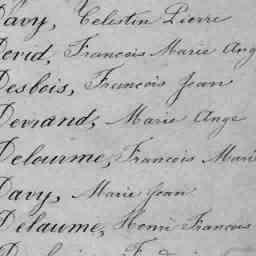 Davy, Celestin Pierre
David, Francois Marie Ange
Desbois, Francois Jean
Devrand, Marie Ange
Delourme, Francois Marie
Davy, Marie Jean
Delaume, Henri Francois